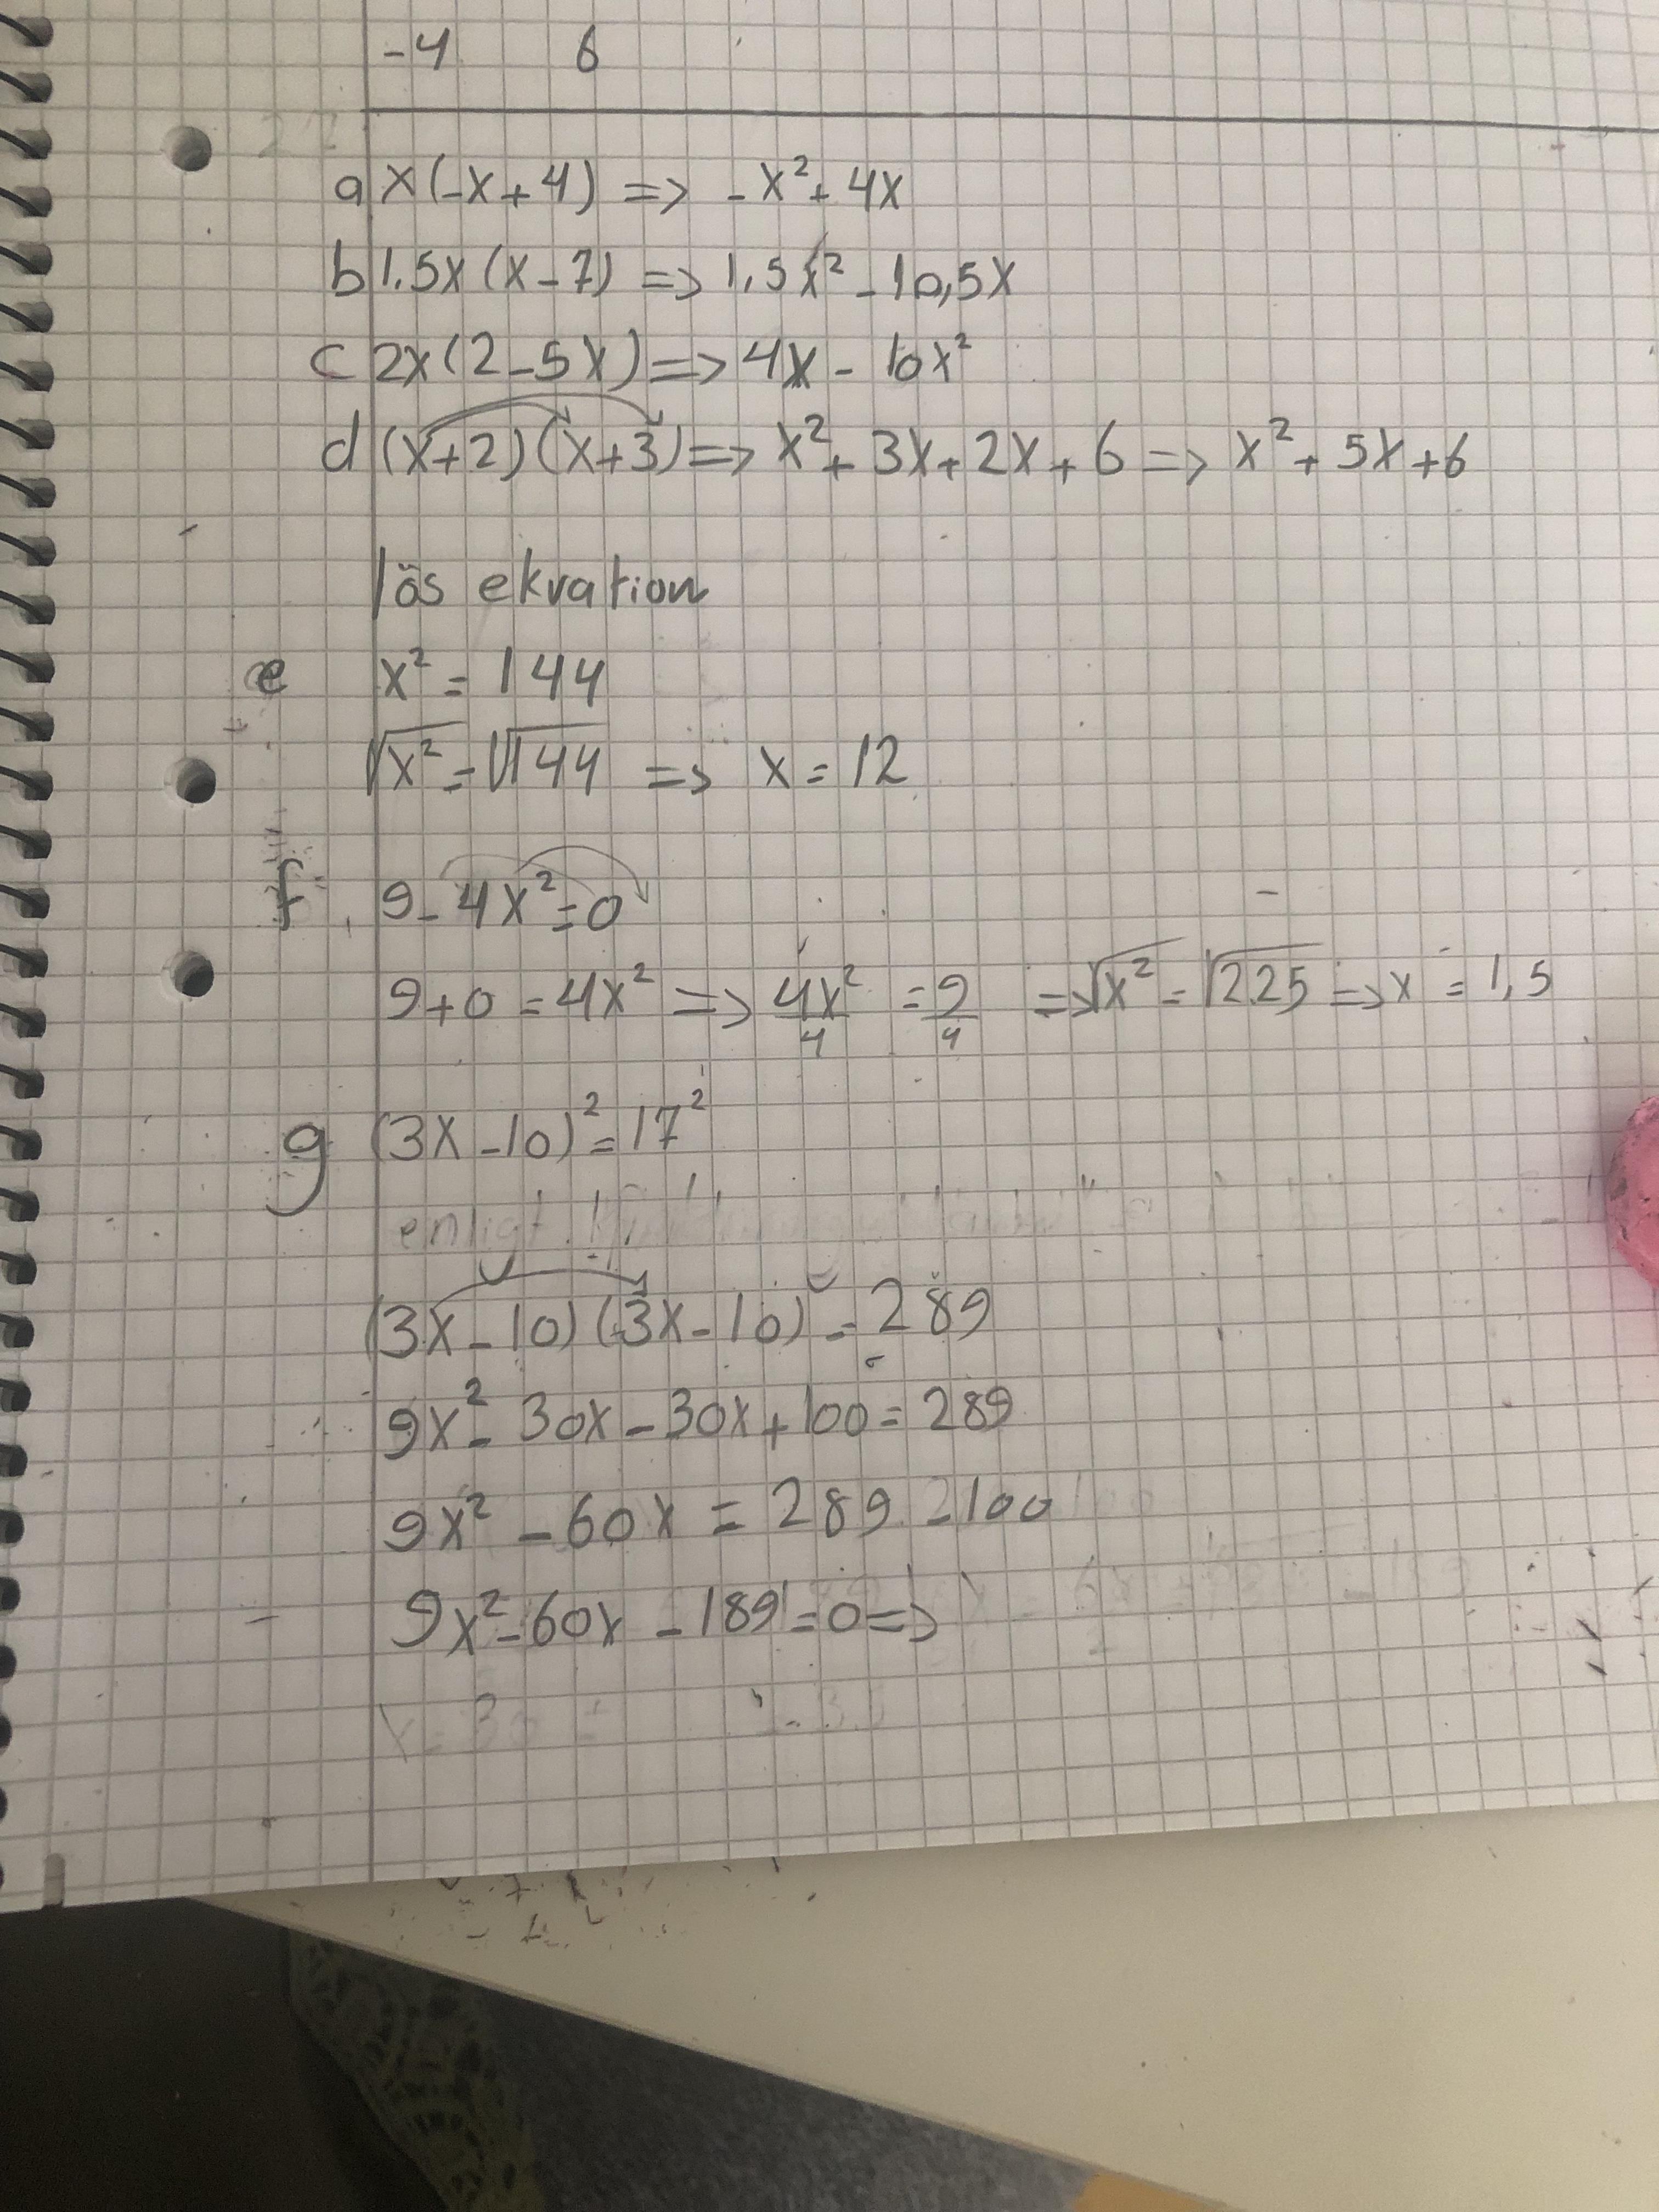 -4 6
a x(-x+4) => -x²+4x
b 1,5x(x-7) => 1,5x²-10,5x
c 2x(2-5x) => 4x-10x²
d (x+2)(x+3) => x²+3x+2x+6 => x²+5x+6
lös ekvation
e x²=144
√x²=√144 => x=12
f 9-4x²=0
9+0=4x² => 4x²/4 = 9/4 => √x²=√225 => x=1,5
g (3x-10)²=17²
(3x-10)(3x-10)=289
9x²-30x-30x+100=289
9x²-60x=289-100
9x²-60x-189=0=>